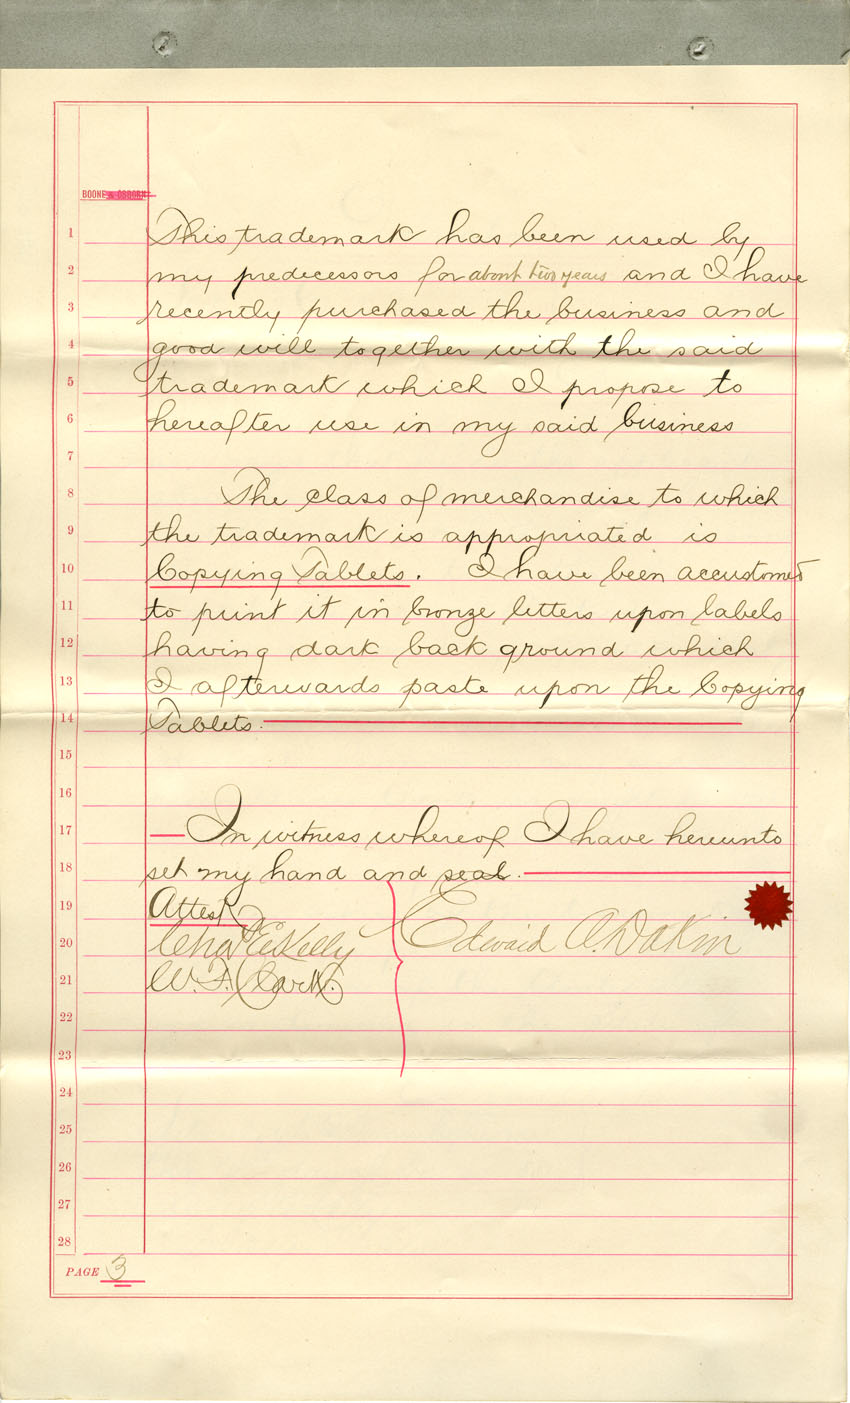 BOONE & OSBORN
1 This trademark has been used by
2 my predecessors for about two years and I have
3 recently purchased the business and
4 good will together with the said
5 trademark which I propose to
6 hereafter use in my said business
7
8 The class of merchandise to which
9 the trademark is appropriated is
10 Copying Tablets. I have been accustomed
11 to print it in bronze letters upon labels
12 having dark back ground which
13 I afterwards paste upon the Copying
14 Tablets.
15
16
17 In witness whereof I have hereunto
18 set my hand and seal.
19 Attest
20 Chas E. Kelly Edward A. Dakin
21 W. F. Clark.
22
23
24
25
26
27
28
PAGE 3